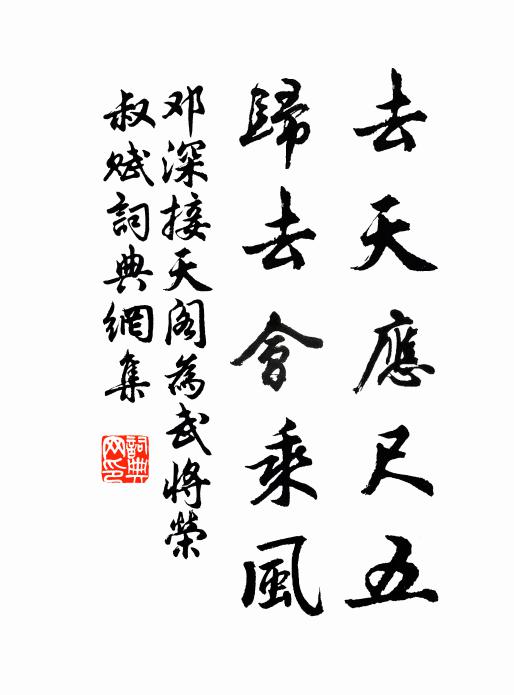 去天應尺五
歸去會乘風
邓深接天阁為武将榮
叔赋詞典網集
詞典网印